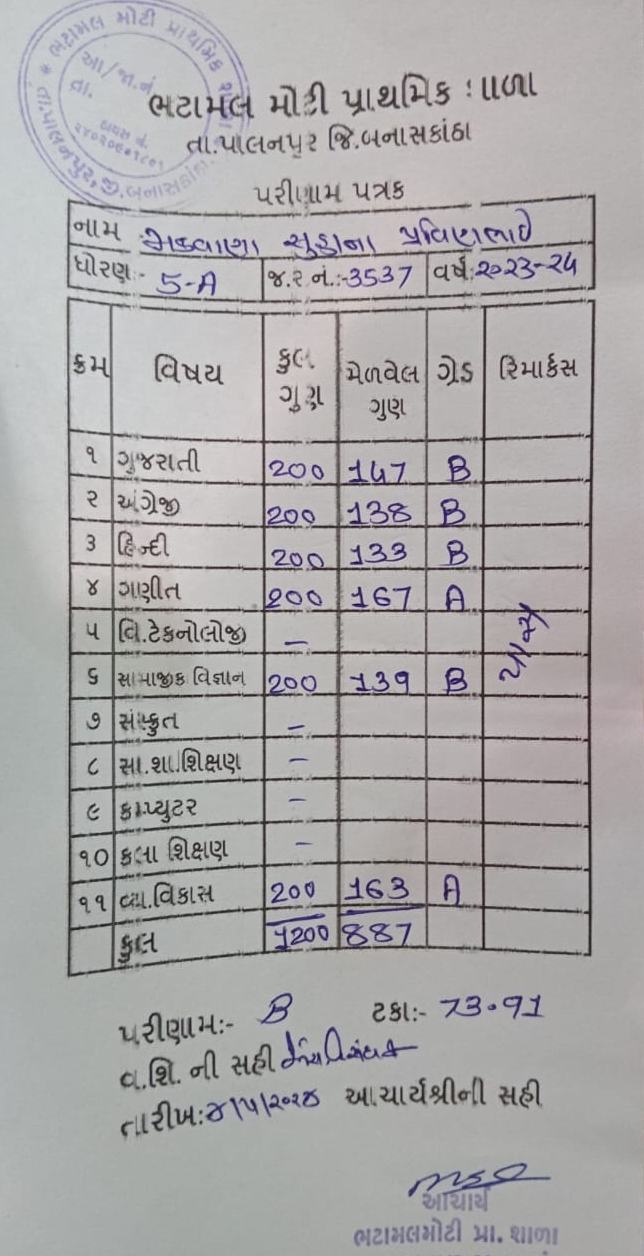 ભટામલ મોટી પ્રાથમિક શાળા
તા.પાલનપુર, જી.બનાસકાંઠા
આ/જા.નં.
તા.
ભટામલ મોટી પ્રાથમિક શાળા
તા.પાલનપુર જિ.બનાસકાંઠા
પરીણામ પત્રક
નામ મકવાણા સુહાના પ્રવિણભાઈ
ધોરણ:- 5-A જ.ર.નં.:-3537 વર્ષ:૨૦૨૩-૨૪
ક્રમ વિષય કુલ ગુણ મેળવેલ ગુણ ગ્રેડ રિમાર્કસ
૧ ગુજરાતી 200 147 B
૨ અંગ્રેજી 200 138 B
૩ હિન્દી 200 133 B
૪ ગણીત 200 167 A
૫ વિ.ટેકનોલોજી –
૬ સામાજીક વિજ્ઞાન 200 139 B
પાસ
૭ સંસ્કૃત –
૮ સા.શા.શિક્ષણ –
૯ કમ્પ્યુટર –
૧૦ કલા શિક્ષણ –
૧૧ વ્યા.વિકાસ 200 163 A
કુલ 1200 887
પરીણામ:- B ટકા:- 73.91
વ.શિ. ની સહી
તારીખ:૪/૫/૨૦૨૪ આચાર્યશ્રીની સહી
આચાર્ય
ભટામલમોટી પ્રા. શાળા